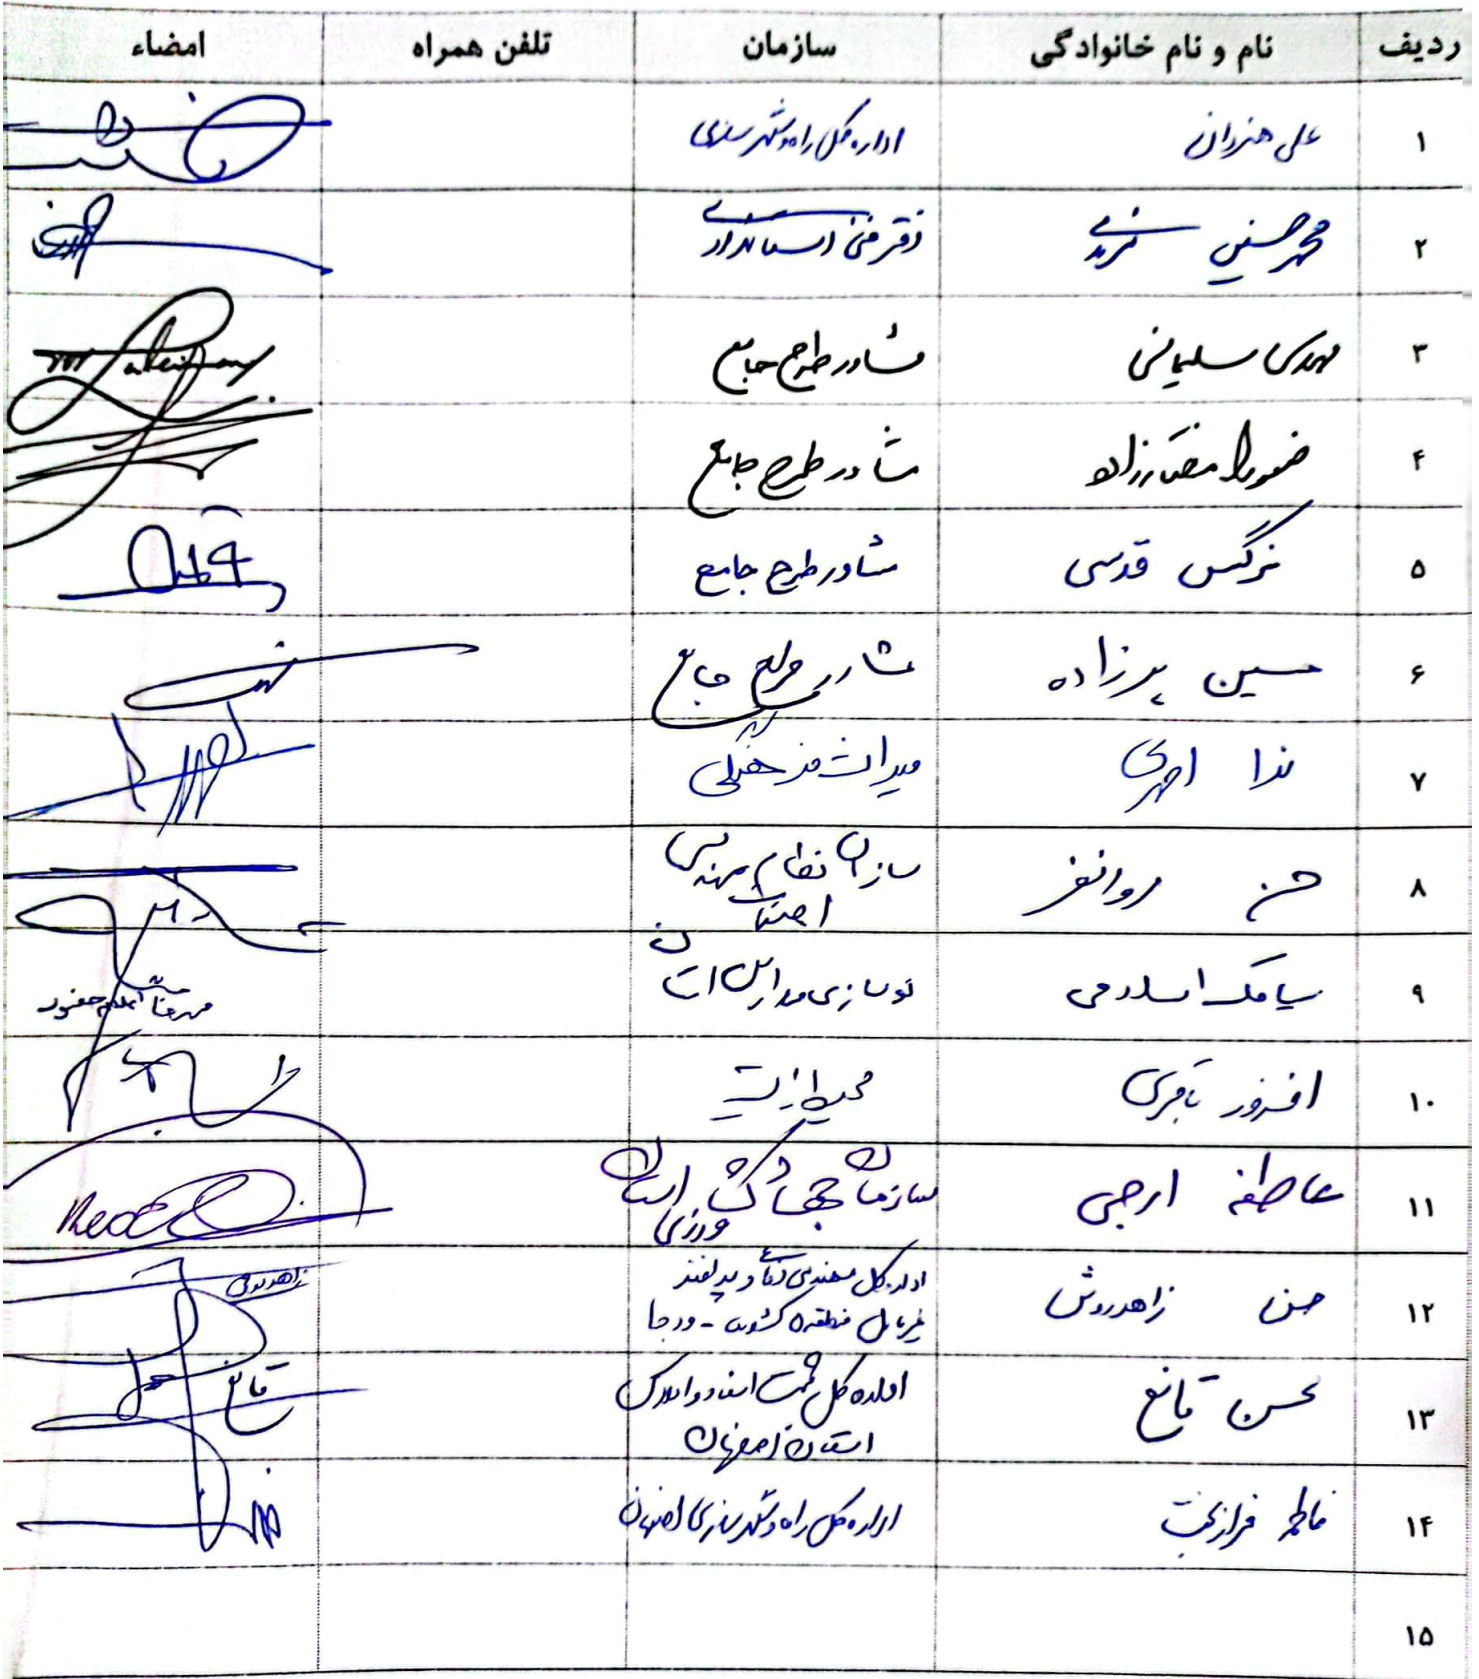 ردیف نام و نام خانوادگی سازمان تلفن همراه امضاء
۱ علی هنردان اداره کل راه و شهرسازی
۲ محمد حسینی دفتر فنی استانداری
۳ مهدی سلیمانی مشاور طرح جامع
۴ مشاور طرح جامع
۵ نرگس قدسی مشاور طرح جامع
۶ حسین پیرزاده مشاور طرح جامع
۷ ندا میراث فرهنگی
۸ حسن روانفر سازمان نظام مهندسی
اصفهان
۹ سیامک اسلامی نوسازی مدارس استان
۱۰ افروز باقری محیط زیست
۱۱ عاطفه ارجی سازمان جهاد کشاورزی استان
۱۲ حسن زاهدروش اداره کل مهندسی و پدافند
غیرعامل منطقه کشوری - ودجا
۱۳ محسن قانع اداره کل ثبت اسناد و املاک قانع
استان اصفهان
۱۴ فاطمه فرازبخت اداره کل راه و شهرسازی اصفهان
۱۵